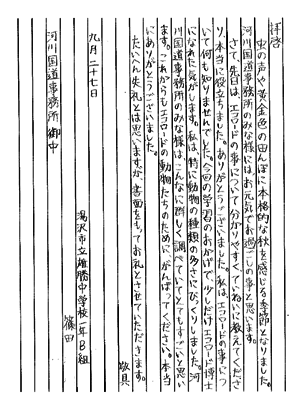 拝啓
虫の声や黄金色の田んぼに本格的な秋を感じる季節となりました。
河川国道事務所のみな様にはお元気でお過ごしの事と思います。
さて、先日は、エコロードの事について分かりやすくていねいに教えてくださ
り、本当に役立ちました。ありがとうございました。私は、エコロードの事につ
いて何も知りませんでした。今回の学習のおかげで、少しだけエコロード博士
になれた気がします。私は、特に動物の種類の多さにびっくりしました。河
川国道事務所のみな様は、こんなに詳しく調べていてとてもすごいと思い
ます。これからもエコロードの動物たちのために、がんばってください。本当
にありがとうございました。
たいへん失礼とは思いますが、書面をもってお礼とさせていただきます。
敬具
九月二十七日
湯沢市立雄勝中学校一年B組
篠田
河川国道事務所 御中